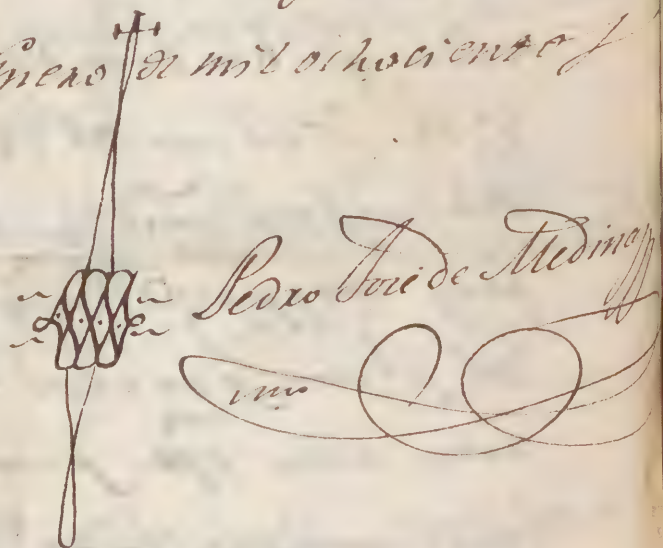 Enero de mil ochocientos
Pedro José de Medina